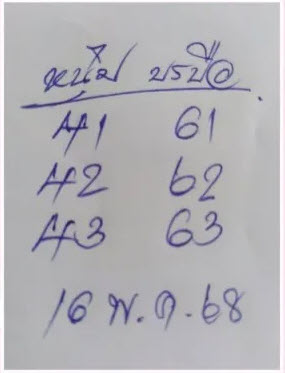 หนไม บรบือ
41 61
42 62
43 63
16 พ.ค.68